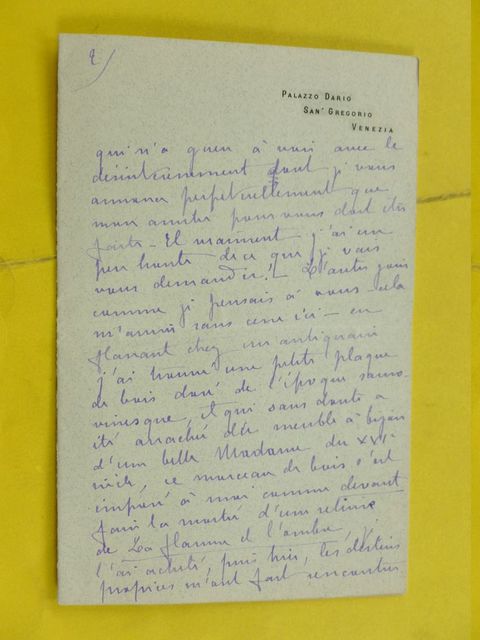 2/
PALAZZO DARIO
SAN' GREGORIO
VENEZIA
qui n'a rien à voir avec le
désintéressement dont je vous
annonce perpétuellement que
mon amitié pour vous doit être
faite – Et vraiment j'ai un
peu honte de ce que je vais
vous demander! L'autre jour
comme je pensais à vous – cela
m'arrive sans cesse ici – en
flanant chez un antiquaire
j'ai trouvé une petite plaque
de bois doré de l'époque
et qui sans doute a
été arraché du meuble à bijoux
d'une belle Madame du XVI
siècle, ce morceau de bois s'est
imposé à moi comme devant
faire la moitié d'une reliure
de La flamme et l'ombre. Je
l'ai acheté, puis hier, les destins
propices m'ont fait rencontrer